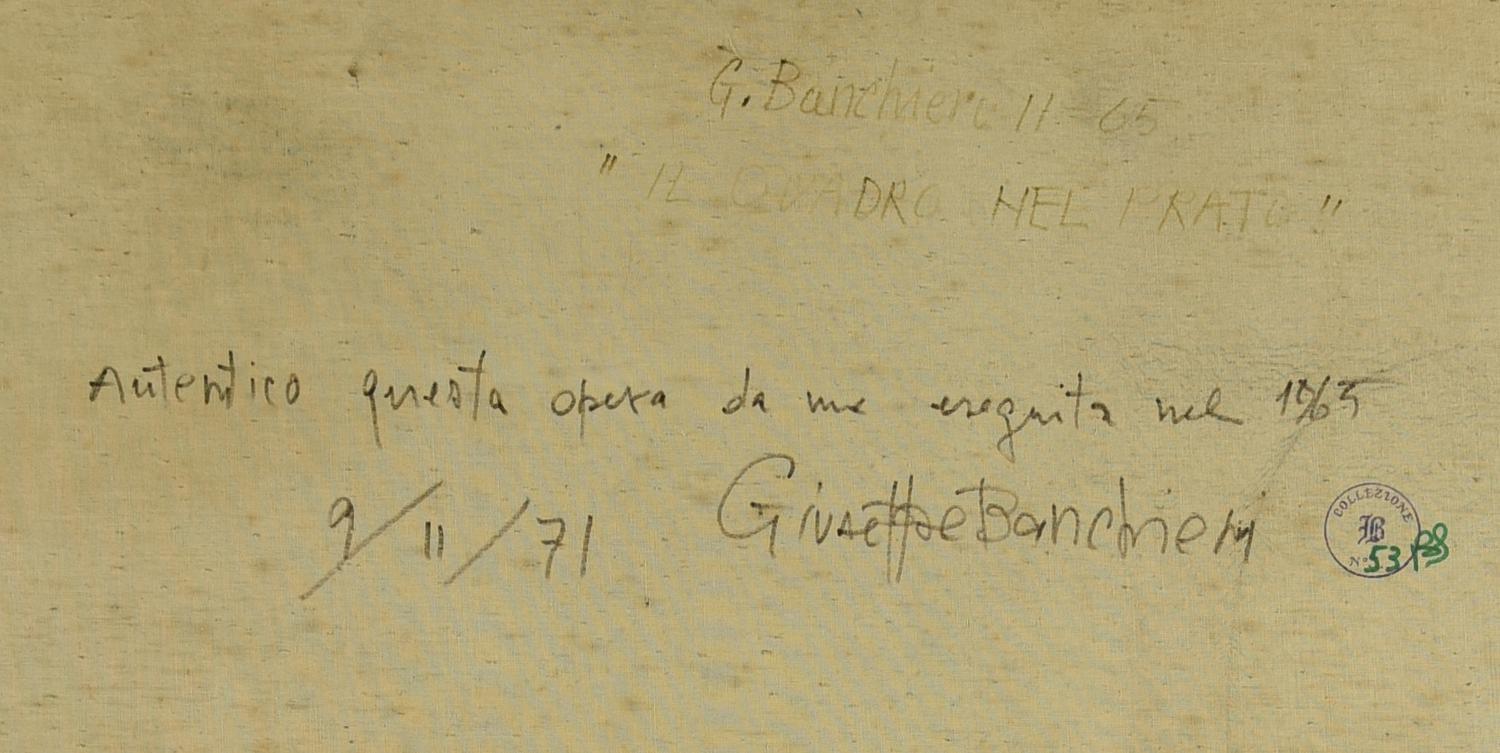 G. Banchieri 11-65
"IL QUADRO NEL PRATO"
Autentico questa opera da me eseguita nel 1965
9/11/71 Giuseppe Banchieri
COLLEZIONE
B
N° 53